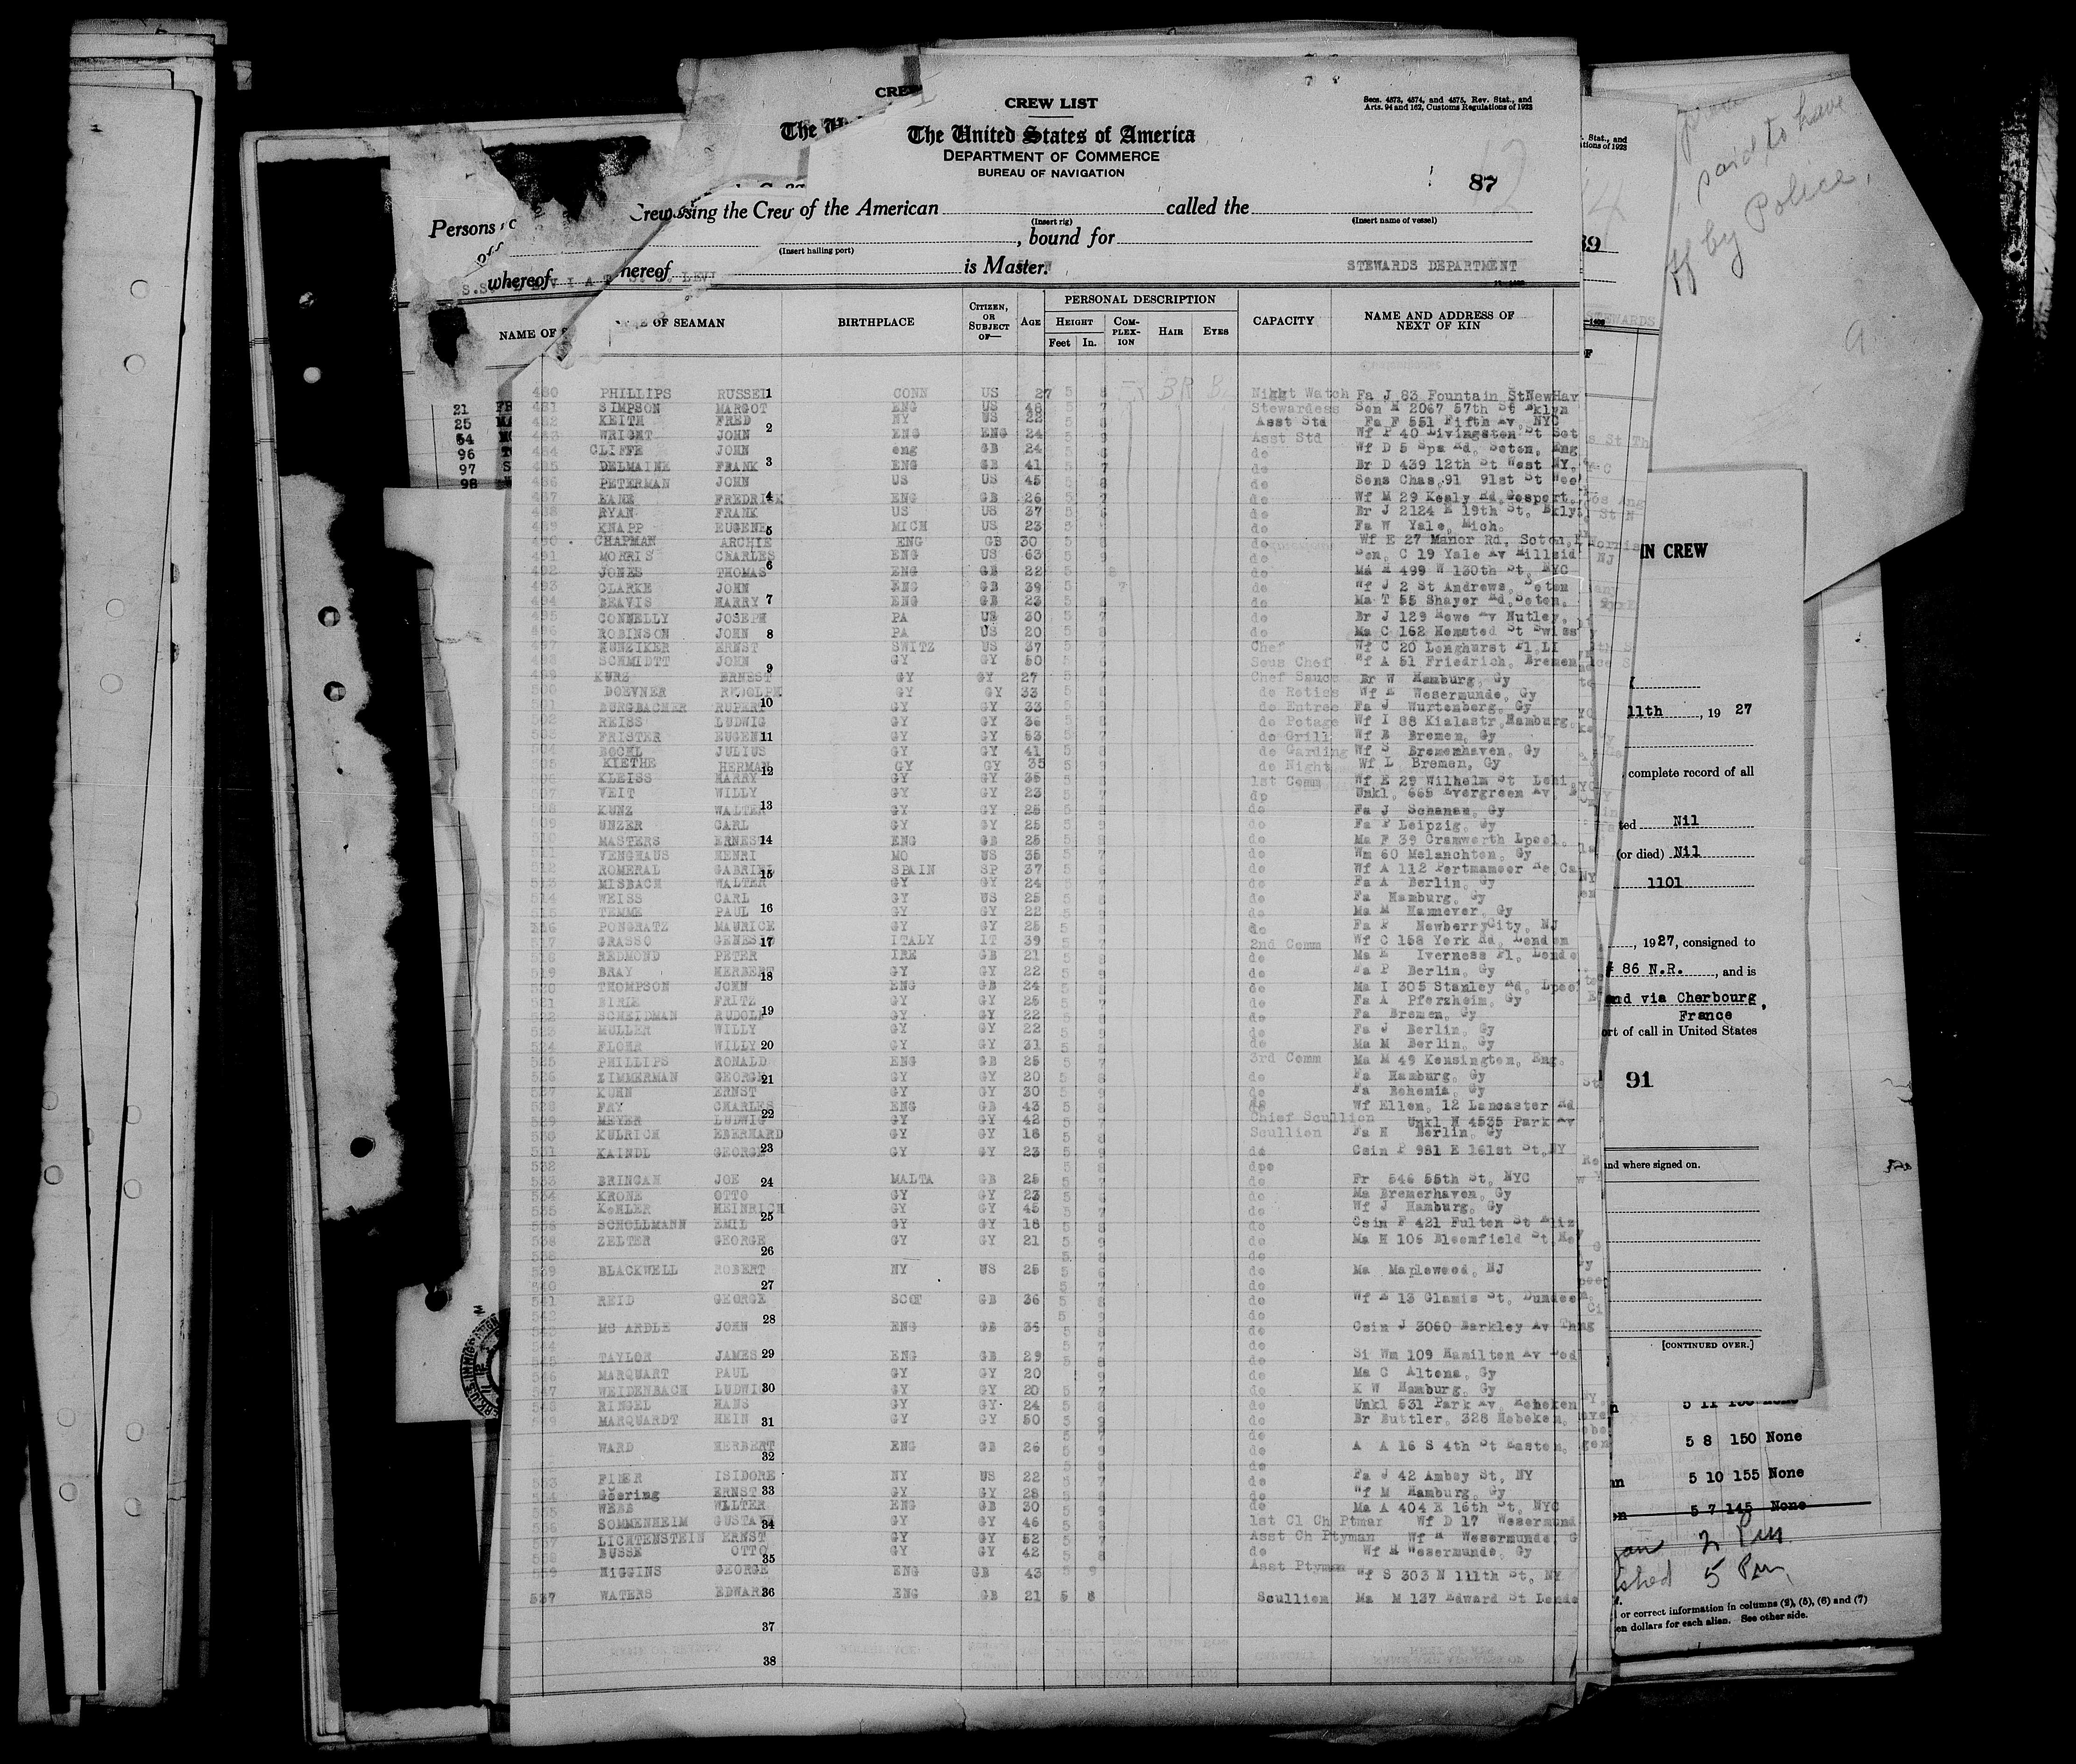 CREW LIST
Secs. 4573, 4574, and 4575, Rev. Stat., and
Arts. 94 and 162, Customs Regulations of 1923
The United States of America
DEPARTMENT OF COMMERCE
BUREAU OF NAVIGATION
87
12
Crew of the American called the
(Insert rig) (Insert name of vessel)
, bound for
(Insert hailing port)
whereof is Master.
STEWARDS DEPARTMENT
NAME OF SEAMAN BIRTHPLACE CITIZEN, OR SUBJECT OF— AGE PERSONAL DESCRIPTION CAPACITY NAME AND ADDRESS OF NEXT OF KIN
HEIGHT COMPLEXION HAIR EYES
Feet In.
480 PHILLIPS RUSSEL 1 CONN US 27 5 8 BR Night Watch Fa J 83 Fountain St NewHav
481 SIMPSON MARGOT ENG US 48 5 7 Stewardess Son M 2067 57th St Bklyn
482 KEITH FRED 2 NY US 22 5 8 Asst Std Fa F 551 Fifth Av, NYC
483 WRIGHT JOHN ENG ENG 24 5 9 Asst Std Wf P 40 Livingston St Sot
484 CLIFFE JOHN eng GB 24 5 6 do Wf D 5 Spa Rd, Soton, Eng
485 DELMAINE FRANK 3 ENG GB 41 5 7 do Br D 439 12th St West NY,
486 PETERMAN JOHN US US 45 5 8 do Sons Chas, 91 91st St Woo
487 LANE FREDRICK 4 ENG GB 26 5 7 do Wf M 29 Kealy Rd, Gosport,
488 RYAN FRANK US US 37 5 6 do Br J 2124 E 19th St, Bkly
489 KNAPP EUGENE 5 MICH US 23 5 do Fa W Yale, Mich.
490 CHAPMAN ARCHIE ENG GB 30 5 8 do Wf E 27 Manor Rd, Soton, E
491 MORRIS CHARLES ENG US 63 5 9 do Son, C 19 Yale Av Hillsid
492 JONES THOMAS 6 ENG GB 22 5 8 do Ma M 499 W 130th St, NYC
493 CLARKE JOHN ENG GB 39 5 7 do Wf J 2 St Andrews, Soton
494 BEAVIS HARRY 7 ENG GB 23 5 8 do Ma T 55 Shayer Rd, Soton.
495 CONNELLY JOSEPH PA US 30 5 7 do Br J 129 Howe Av Nutley,
496 ROBINSON JOHN 8 PA US 20 5 8 do Ma C 162 Homsted St Swiss
497 HUNZIKER ERNST SWITZ US 37 5 7 Chef Wf C 20 Longhurst Pl, LI
498 SCHMIDTT JOHN 9 GY GY 50 5 6 Sous Chef Wf A 51 Friedrich, Bremen
499 KURZ ERNSST GY GY 27 5 7 Chef Sauce Br W Hamburg, Gy
500 DOEVNER RUDOLPH GY GY 33 5 8 do Rotiss Wf E Wesermunde, Gy
501 BURGBACHER RUPERT 10 GY GY 33 5 9 do Entree Fa J Wurtenberg, Gy
502 REISS LUDWIG GY GY 36 5 8 do Potage Wf I 88 Kialastr, Hamburg,
503 FRISTER EUGEN 11 GY GY 53 5 7 do Grill Wf B Bremen, Gy
504 BOCKL JULIUS GY GY 41 5 8 do Garding Wf S Bremenhaven, Gy
505 KIETHE HERMAN 12 GY GY 35 5 9 do Night Wf L Bremen, Gy
506 KLEISS HARRY GY GY 35 5 8 1st Comm Wf E 29 Wilhelm St Lehi
507 VEIT WILLY GY GY 23 5 7 dp Unkl, 665 Evergreen Av,
508 KUNZ WALTER 13 GY GY 25 5 8 do Fa J Schanau, Gy
509 UNZER CARL GY GY 25 5 9 do Fa P Leipzig, Gy
510 MASTERS ERNEST 14 ENG GB 25 5 8 do Ma F 39 Cramworth Lpool.
511 VENGHAUS HENRI MO US 35 5 7 do Wm 60 Melanchton, Gy
512 ROMERAL GABRIEL 15 SPAIN SP 37 5 6 do Wf A 112 Portmanoor Rd, Ca
513 MISBACH WALTER GY GY 24 5 7 do Fa A Berlin, Gy
514 WEISS CARL GY US 25 5 8 do Fa Hamburg, Gy
515 TEMME PAUL 16 GY GY 22 5 9 do Ma M Hannover, Gy
516 PONGRATZ MAURICE GY GY 25 5 8 do Fa P Newberry City, NJ
517 GRASSO GENESIO 17 ITALY IT 39 5 7 2nd Comm Wf C 158 York Rd, London
518 REDMOND PETER IRE GB 21 5 8 do Ma E Iverness Pl, Londo
519 BRAY HERBERT 18 GY GY 22 5 9 do Fa P Berlin, Gy
520 THOMPSON JOHN ENG GB 24 5 8 do Ma I 305 Stanley Rd, Lpool
521 BIRIE FRITZ GY GY 25 5 7 do Fa A Pforzheim, Gy
522 SCHEIDMAN RUDOLF 19 GY GY 22 5 8 do Fa Bremen, Gy
523 MULLER WILLY GY GY 22 5 9 do Fa J Berlin, Gy
524 FLOHR WILLY 20 GY GY 31 5 8 do Ma M Berlin, Gy
525 PHILLIPS RONALD ENG GB 25 5 7 3rd Comm Ma M 49 Kensington, Eng.
526 ZIMMERMAN GEORGE 21 GY GY 20 5 8 do Fa Hamburg, Gy
527 KUHN ERNST GY GY 30 5 9 do Fa Bohemia, Gy
528 FRY CHARLES 22 ENG GB 43 5 8 do Wf Ellen, 12 Lancaster Rd
529 MEYER LUDWIG GY GY 42 5 7 Chief Scullion Unkl N 4535 Park Av
530 KULRICH EBERHARD GY GY 18 5 8 Scullion Fa H Berlin, Gy
531 KAINDL GEORGE 23 GY GY 23 5 9 do Csin P 981 E 161st St, NY
532 5 8 dpo
533 BRINCAH JOE 24 MALTA GB 25 5 7 do Fr 546 55th St, NYC
534 KRONE OTTO GY GY 23 5 6 do Ma Bremerhaven, Gy
535 KoHLER HEINRICH 25 GY GY 45 5 7 do Wf J Hamburg, Gy
536 SCHOLLMANN EMIL GY GY 18 5 8 do Csin F 421 Fulton St Eliz
538 ZELTER GEORGE GY GY 21 5 9 do Ma H 106 Bloomfield St, Ho
538 26 5 8 do
539 BLACKWELL ROBERT NY US 25 5 6 do Ma Maplewood, NJ
540 27 5 7
541 REID GEORGE SCOT GB 36 5 8 do Wf E 13 Glamis St, Dundee
542 28 5 9 do
543 MC ARDLE JOHN ENG GB 35 5 8 do Csin J 3060 Barkley Av Th
544 5 7 do
545 TAYLOR JAMES 29 ENG GB 29 5 8 do Si Wm 109 Hamilton Av
546 MARQUART PAUL GY GY 20 9 do Ma C Altona, Gy
547 WEIDENBACH LUDWIG 30 GY GY 20 5 7 do K W Hamburg, Gy
548 RINGEL HANS GY GY 24 5 8 do Unkl 531 Park Av, Hoboken
549 MARQUARDT HEIN 31 GY GY 50 5 9 do Br Buttler, 328 Hoboken,
WARD HERBERT 32 ENG GB 26 5 9 do A A 16 S 4th St Easton,
553 FIMER ISIDORE NY US 22 5 7 do Fa J 42 Amboy St, NY
554 Goering ERNST 33 GY GY 28 5 8 do Wf M Hamburg, Gy
555 WEBB WLLTER ENG GB 30 5 9 do Ma A 404 E 16th St, NYC
556 SOMMENHEIM GUSTAVE 34 GY GY 46 5 8 1st Cl Ch Ptmar Wf D 17 Wesermund
557 LICHTENSTEIN ERNST GY GY 52 5 7 Asst Ch Ptyman Wf M Wesermunde, G
558 BUSSE OTTO 35 GY GY 42 5 8 do Wf M Wesermunde, Gy
559 HIGGINS GEORGE ENG GB 43 5 9 Asst Ptyman Wf S 303 N 111th St, NY
537 WATERS EDWARD 36 ENG GB 21 5 8 Scullion Ma M 137 Edward St Londo
37
38
Persons
whereof
NAME OF S
21
25
54
96
97
98
said to have
by Police.
IN CREW
11th , 19 27
complete record of all
Nil
(or died) Nil
1101
, 1927, consigned to
# 86 N.R. , and is
and via Cherbourg,
France
ort of call in United States
91
and where signed on.
[CONTINUED OVER.]
5 8 150 None
5 10 155 None
5 7 145 None
2 Pm
5 Pm
or correct information in columns (2), (5), (6) and (7)
en dollars for each alien. See other side.